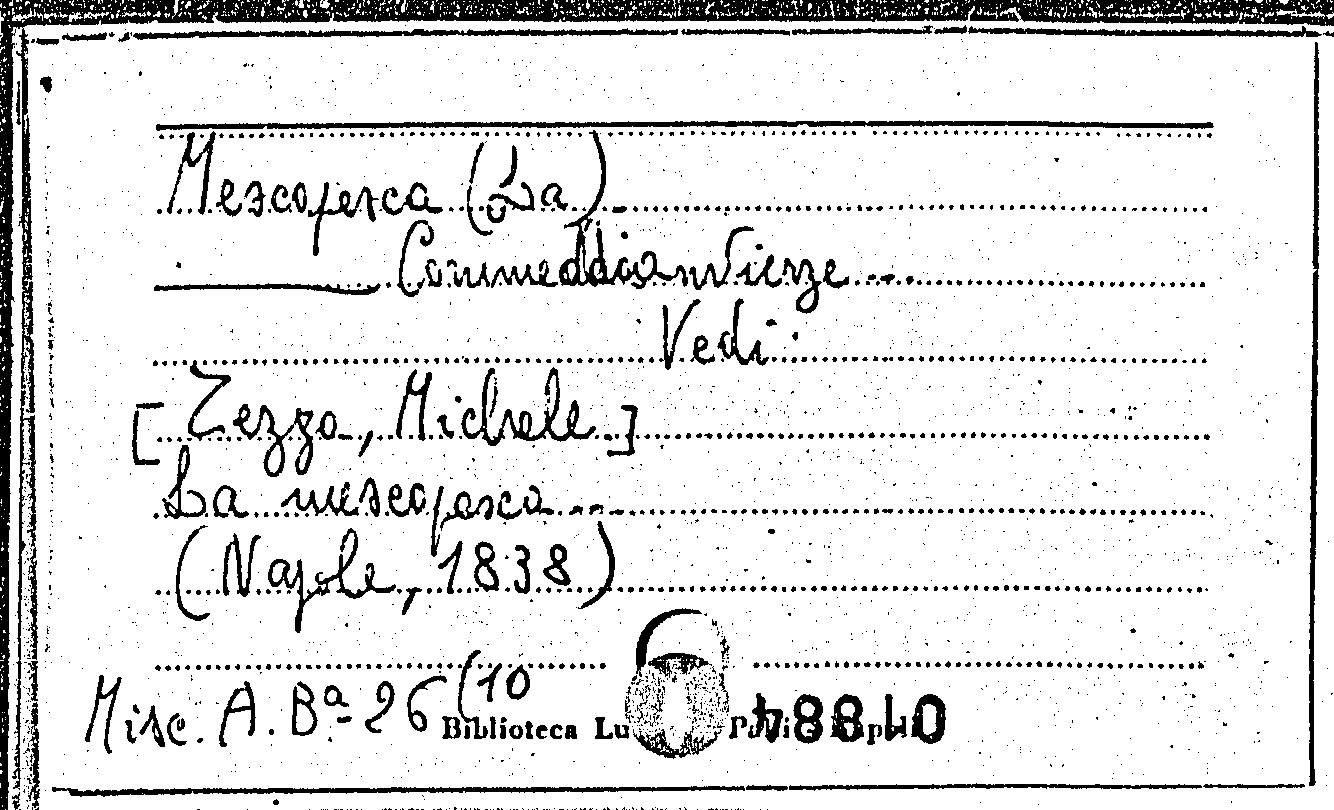 Mescopesca (La)
Commeddia nvierze...
Vedi:
[Zezza, Michele]
La mescopesca...
(Napole, 1838)
Misc. A. Bª 26 (10
Biblioteca